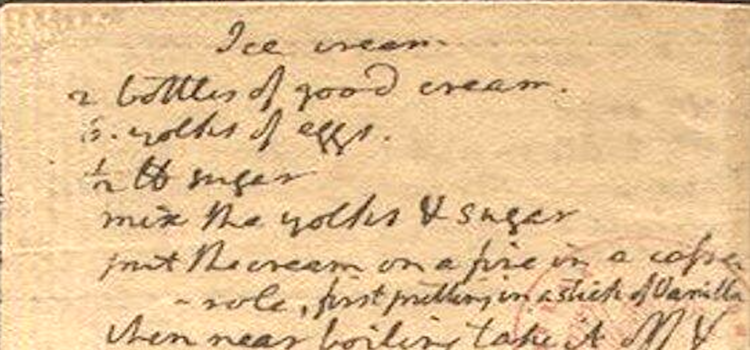 Ice cream.
2 bottles of good cream.
6. yolks of eggs.
1/2 lb sugar
mix the yolks & sugar
put the cream on a fire in a casse
- role, first putting in a stick of Vanilla
when near boiling take it off &